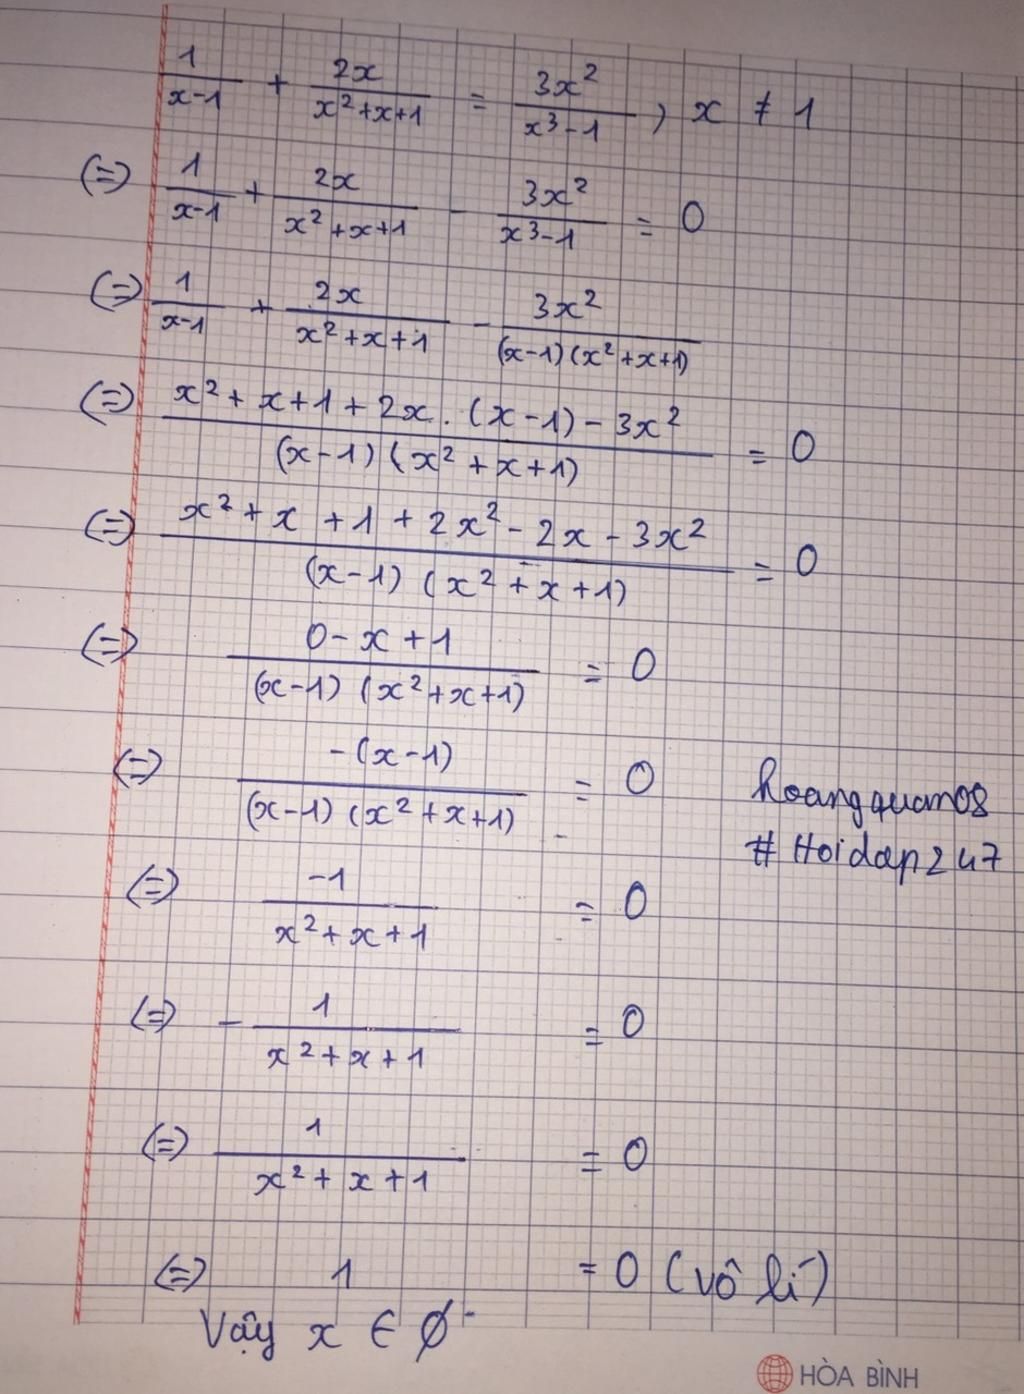 1/(x-1) + 2x/(x²+x+1) = 3x²/(x³-1) , x ≠ 1
(=) 1/(x-1) + 2x/(x²+x+1) - 3x²/(x³-1) = 0
(=) 1/(x-1) + 2x/(x²+x+1) - 3x²/((x-1)(x²+x+1))
(=) (x²+x+1+2x.(x-1)-3x²)/((x-1)(x²+x+1)) = 0
(=) (x²+x+1+2x²-2x-3x²)/((x-1)(x²+x+1)) = 0
(=) (0-x+1)/((x-1)(x²+x+1)) = 0
(=) -(x-1)/((x-1)(x²+x+1)) = 0
hoangquan08
#Hoidap247
(=) -1/(x²+x+1) = 0
(=) - 1/(x²+x+1) = 0
(=) 1/(x²+x+1) = 0
(=) 1 = 0 (vô lí)
Vậy x ∈ ∅
HÒA BÌNH